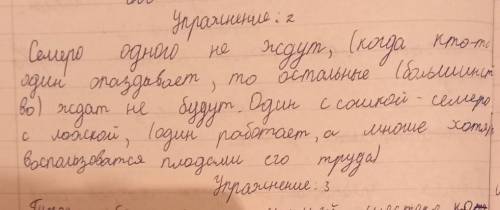 Упражнение: 2
Семеро одного не ждут, (когда кто-то
один опаздывает, то остальные (большинст
во) ждат не будут. Один с сошкой - семеро
с ложкой, (один работает, а многие хотят
воспользоватся плодами его труда)
Упражнение: 3